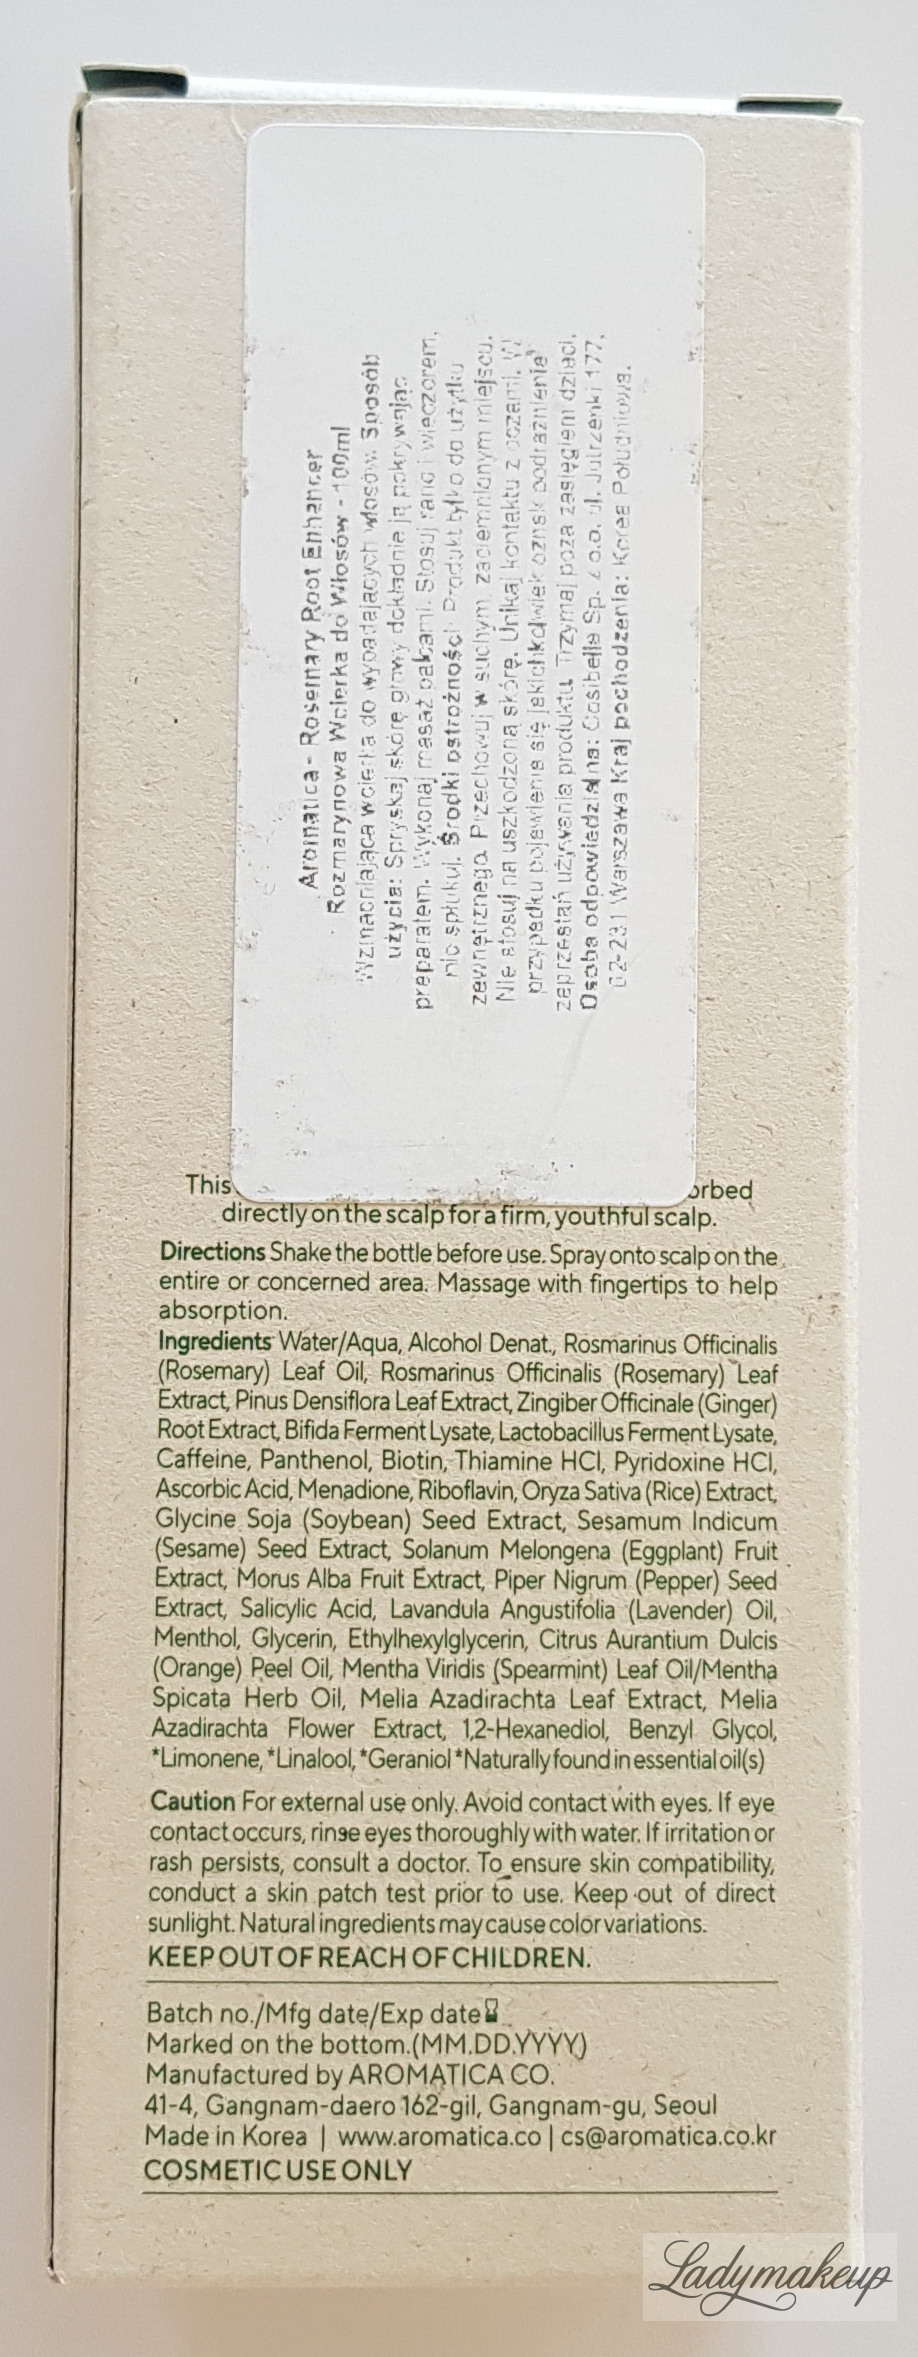 Aromatica - Rosemary Root Enhancer
Rozmarynowa Wcierka do Włosów - 100ml
Wzmacniająca wcierka do wypadających włosów. Sposób
użycia: Spryskaj skórę głowy dokładnie ją pokrywając
preparatem. Wykonaj masaż palcami. Stosuj rano i wieczorem,
nie spłukuj. Środki ostrożności: Produkt tylko do użytku
zewnętrznego. Przechowuj w suchym, zaciemnionym miejscu.
Nie stosuj na uszkodzoną skórę. Unikaj kontaktu z oczami. W
przypadku pojawienia się jakichkolwiek oznak podrażnienia
zaprzestań używania produktu. Trzymaj poza zasięgiem dzieci.
Osoba odpowiedzialna: Cosibella Sp. z o.o. ul. Jutrzenki 177,
02-231 Warszawa Kraj pochodzenia: Korea Południowa.
This orbed
directly on the scalp for a firm, youthful scalp.
Directions Shake the bottle before use. Spray onto scalp on the
entire or concerned area. Massage with fingertips to help
absorption.
Ingredients Water/Aqua, Alcohol Denat., Rosmarinus Officinalis
(Rosemary) Leaf Oil, Rosmarinus Officinalis (Rosemary) Leaf
Extract, Pinus Densiflora Leaf Extract, Zingiber Officinale (Ginger)
Root Extract, Bifida Ferment Lysate, Lactobacillus Ferment Lysate,
Caffeine, Panthenol, Biotin, Thiamine HCI, Pyridoxine HCI,
Ascorbic Acid, Menadione, Riboflavin, Oryza Sativa (Rice) Extract,
Glycine Soja (Soybean) Seed Extract, Sesamum Indicum
(Sesame) Seed Extract, Solanum Melongena (Eggplant) Fruit
Extract, Morus Alba Fruit Extract, Piper Nigrum (Pepper) Seed
Extract, Salicylic Acid, Lavandula Angustifolia (Lavender) Oil,
Menthol, Glycerin, Ethylhexylglycerin, Citrus Aurantium Dulcis
(Orange) Peel Oil, Mentha Viridis (Spearmint) Leaf Oil/Mentha
Spicata Herb Oil, Melia Azadirachta Leaf Extract, Melia
Azadirachta Flower Extract, 1,2-Hexanediol, Benzyl Glycol,
*Limonene, *Linalool, *Geraniol *Naturally found in essential oil(s)
Caution For external use only. Avoid contact with eyes. If eye
contact occurs, rinse eyes thoroughly with water. If irritation or
rash persists, consult a doctor. To ensure skin compatibility,
conduct a skin patch test prior to use. Keep out of direct
sunlight. Natural ingredients may cause color variations.
KEEP OUT OF REACH OF CHILDREN.
Batch no./Mfg date/Exp date
Marked on the bottom.(MM.DD.YYYY)
Manufactured by AROMATICA CO.
41-4, Gangnam-daero 162-gil, Gangnam-gu, Seoul
Made in Korea | www.aromatica.co | cs@aromatica.co.kr
COSMETIC USE ONLY
Ladymakeup